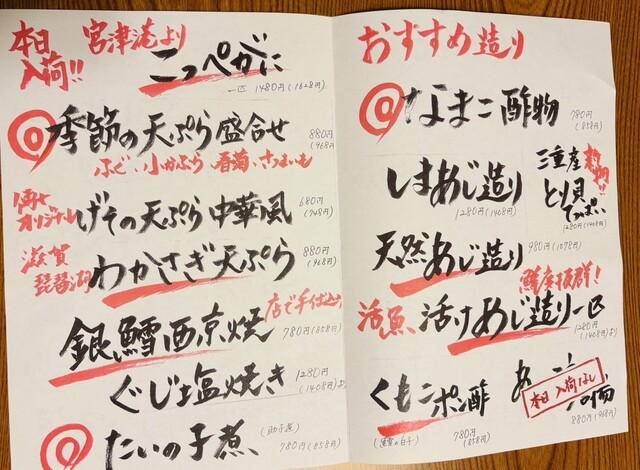 本日入荷!!
宮津港より
こっぺがに
一匹 1480円(1628円)
季節の天ぷら盛合せ
880円(968円)
ふぐ、小かぶら、春菊、さつまいも
オリジナル
げその天ぷら中華風
680円(748円)
滋賀琵琶湖
わかさぎ天ぷら
880円(968円)
銀鱈西京焼
店で手仕込
780円(858円)
ぐじ塩焼き
1280円(1408円)より
たいの子煮、
(助子煮)
780円(858円)
おすすめ造り
なまこ酢物
780円(858円)
しまあじ造り
1280円(1408円)
三重産
とり貝
1280円(1408円)
天然あじ造り
980円(1078円)
鮮度抜群!
活魚、活けあじ造り一匹
1280円(1408円)より
くもこポン酢
(真鱈の白子)
780円(858円)
本日入荷なし
880円(968円)